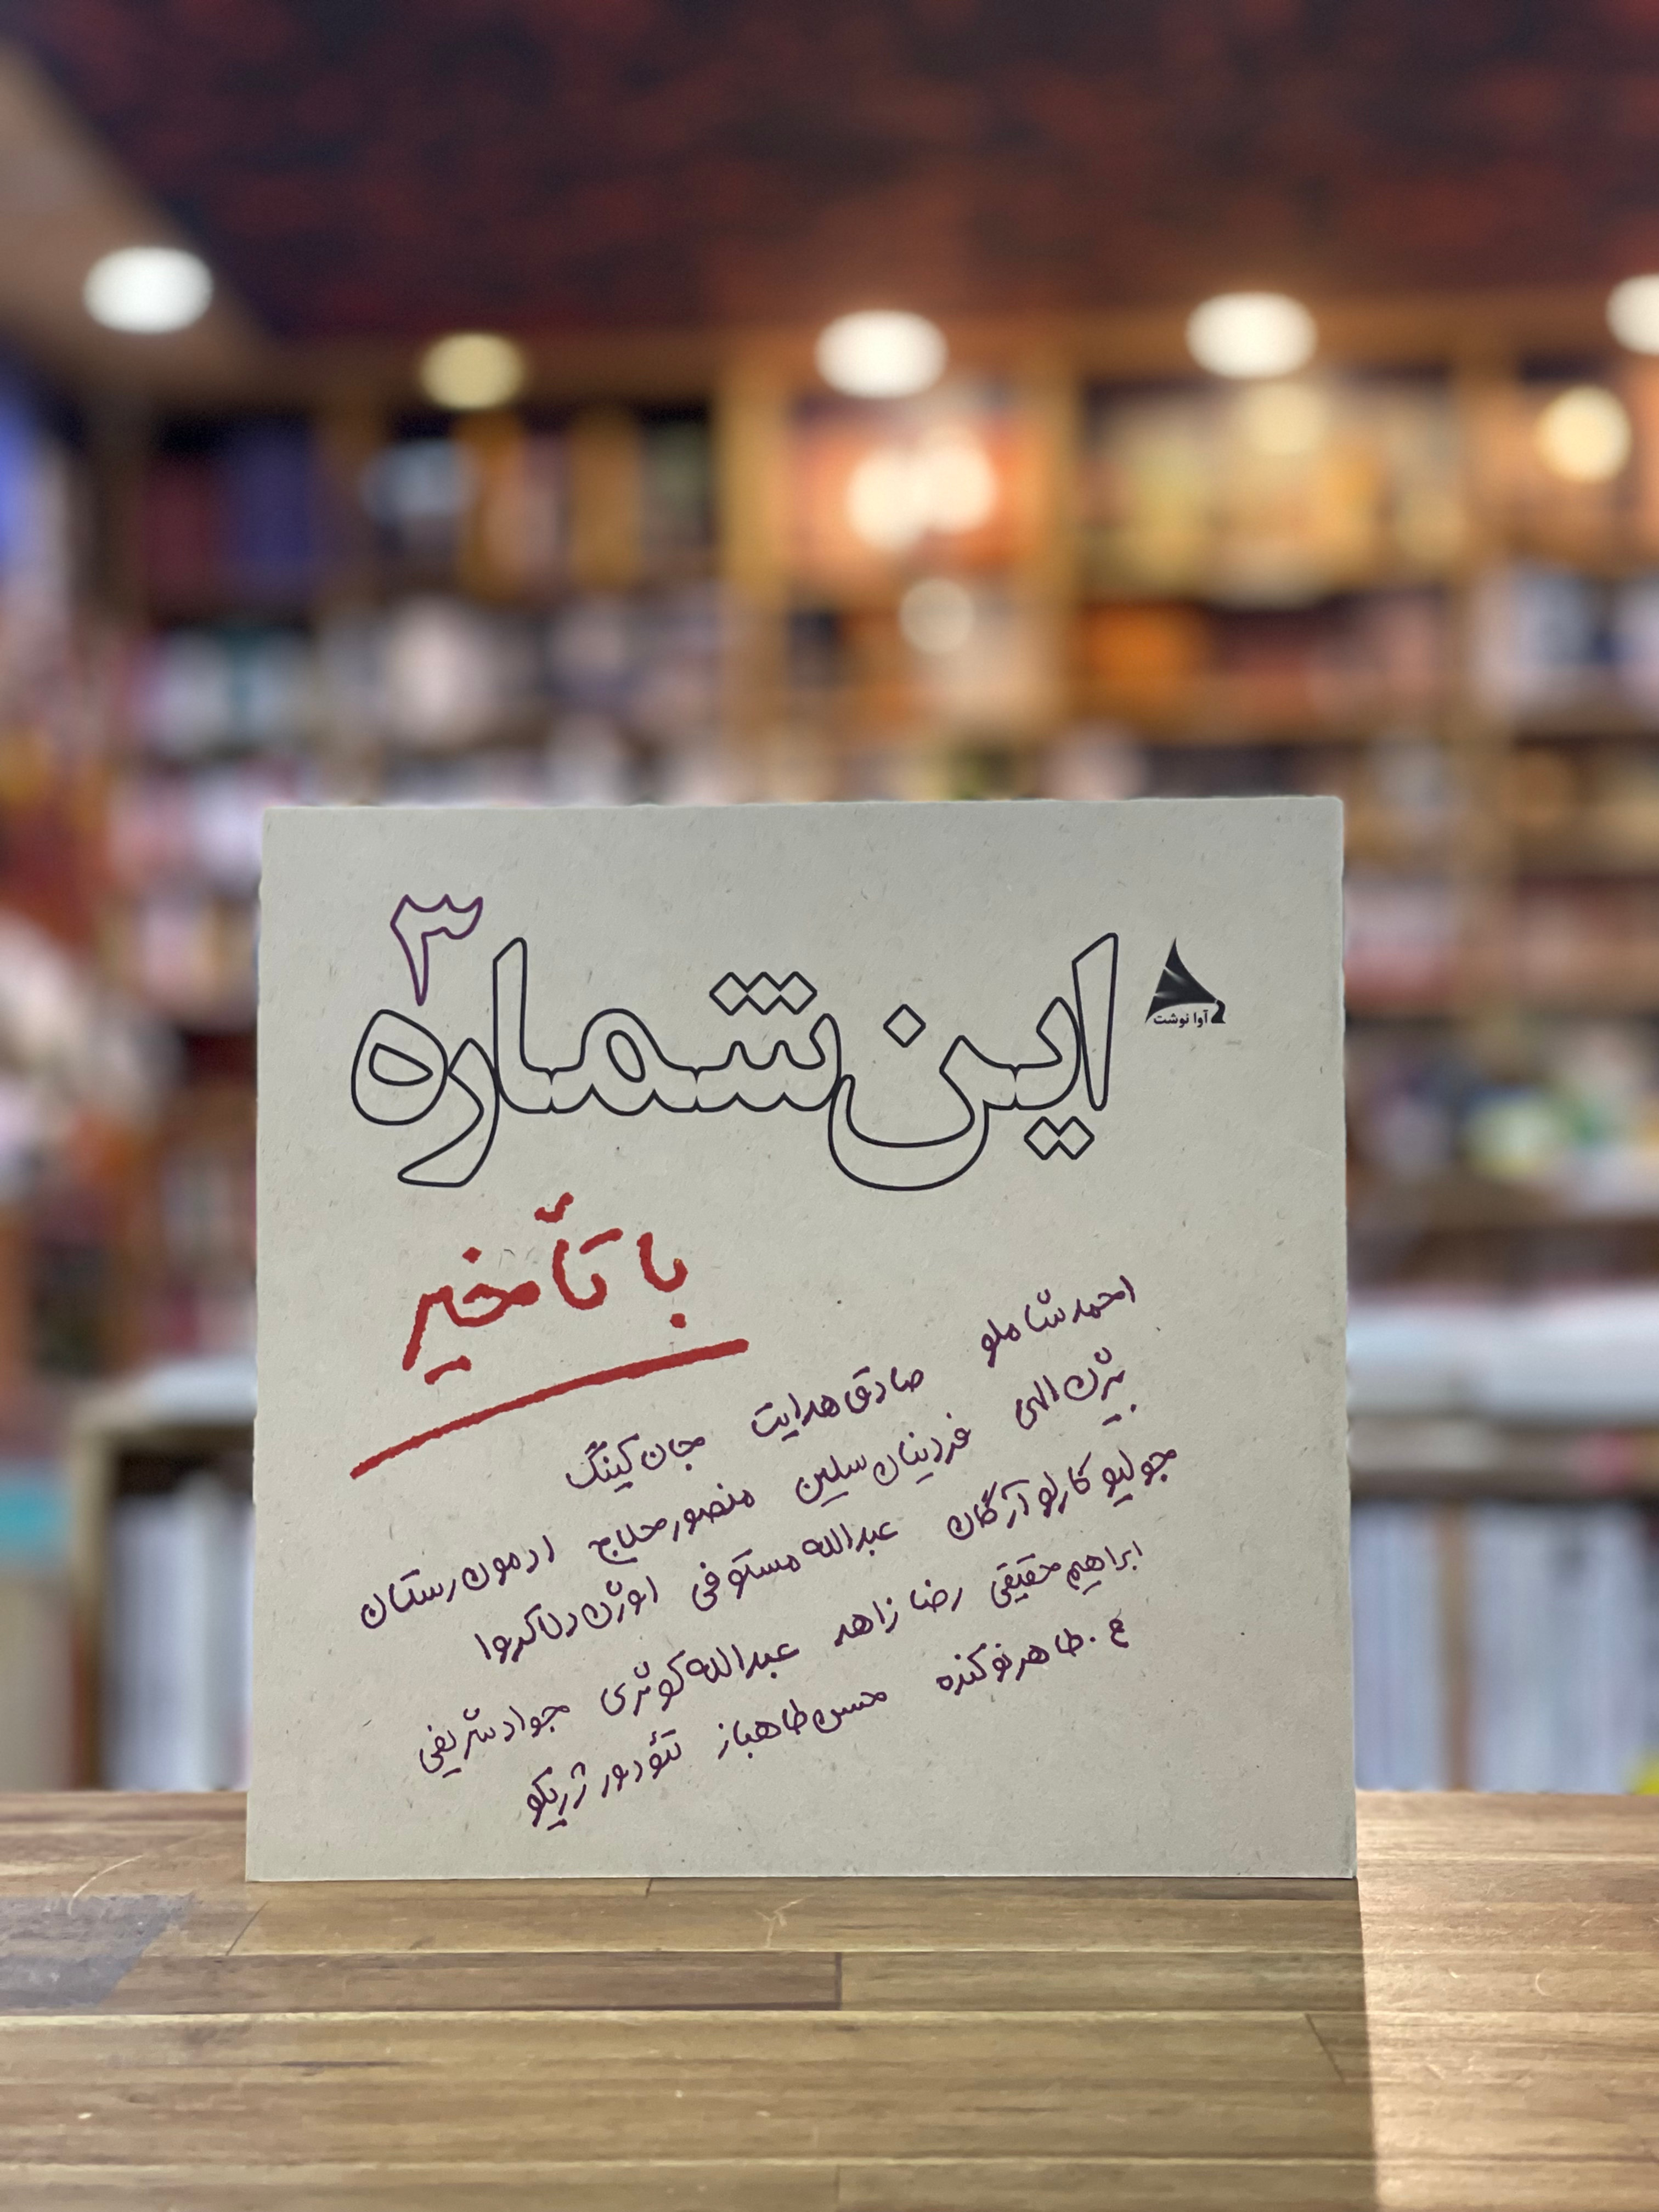 ۳
این شماره
آوا نوشت
با تأخیر
احمد شاملو صادق هدایت جان کینگ
بیژن الهی فردینان سلین منصور حلاج ادمون رستان
جولیو کارلو آرگان عبدالله مستوفی اوژن دلاکروا
ابراهیم حقیقی رضا زاهد عبدالله کوثری جواد شریفی
ع. طاهر نوکنده حسن طاهباز تئودور ژریکو